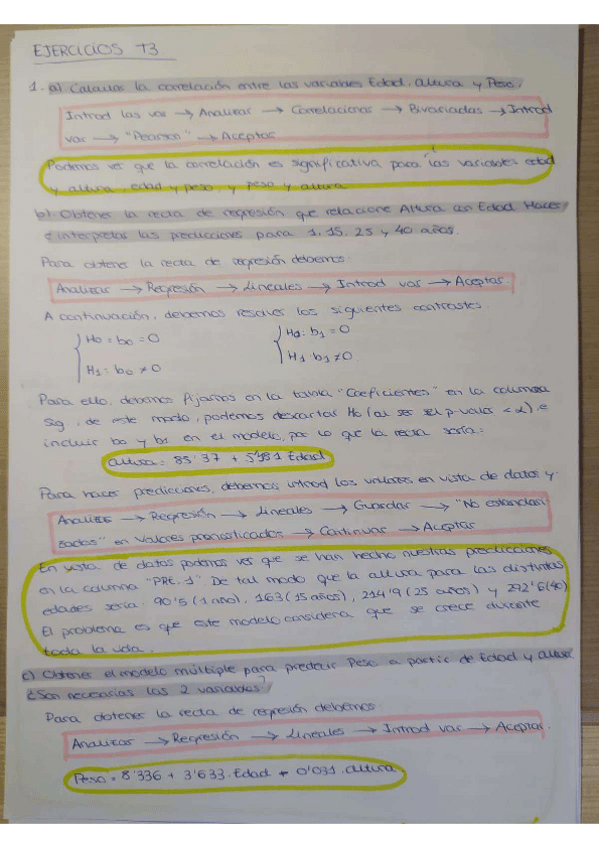 EJERCICIOS T3
1. a) Calcular la correlación entre las variables Edad, Altura y Peso.
Introd las var → Analizar → Correlaciones → Bivariadas → Introd
var → "Pearson" → Aceptar
Podemos ver que la correlación es significativa para las variables edad
y altura, edad y peso, y peso y altura
b) Obtener la recta de regresión que relacione Altura con Edad. Hacer
e interpretar las predicciones para 1, 15, 25 y 40 años.
Para obtener la recta de regresión debemos:
Analizar → Regresión → Lineales → Introd var → Aceptar.
A continuación, debemos resolver los siguientes contrastes.
H0: b0 = 0 H0: b1 = 0
H1: b0 ≠ 0 H1: b1 ≠ 0
Para ello, debemos fijarnos en la tabla "Coeficientes" en la columna
Sig., de este modo, podemos descartar H0 (al ser el p-valor < α), e
incluir b0 y b1 en el modelo, por lo que la recta sería:
Altura = 85'37 + 5'181 Edad
Para hacer predicciones, debemos introd los valores en vista de datos y:
Analizar → Regresión → Lineales → Guardar → "No estandari
zados" en Valores pronosticados → Continuar → Aceptar
En vista de datos podemos ver que se han hecho nuestras predicciones
en la columna "PRE_1". De tal modo que la altura para las distintas
edades sería: 90'5 (1 año), 163 (15 años), 214'9 (25 años) y 292'6 (40)
El problema es que este modelo considera que se crece durante
toda la vida.
c) Obtener el modelo múltiple para predecir Peso a partir de Edad y altura.
¿Son necesarias las 2 variables?
Para obtener la recta de regresión debemos
Analizar → Regresión → Lineales → Introd var → Aceptar.
Peso = 8'336 + 3'633 Edad + 0'031 altura